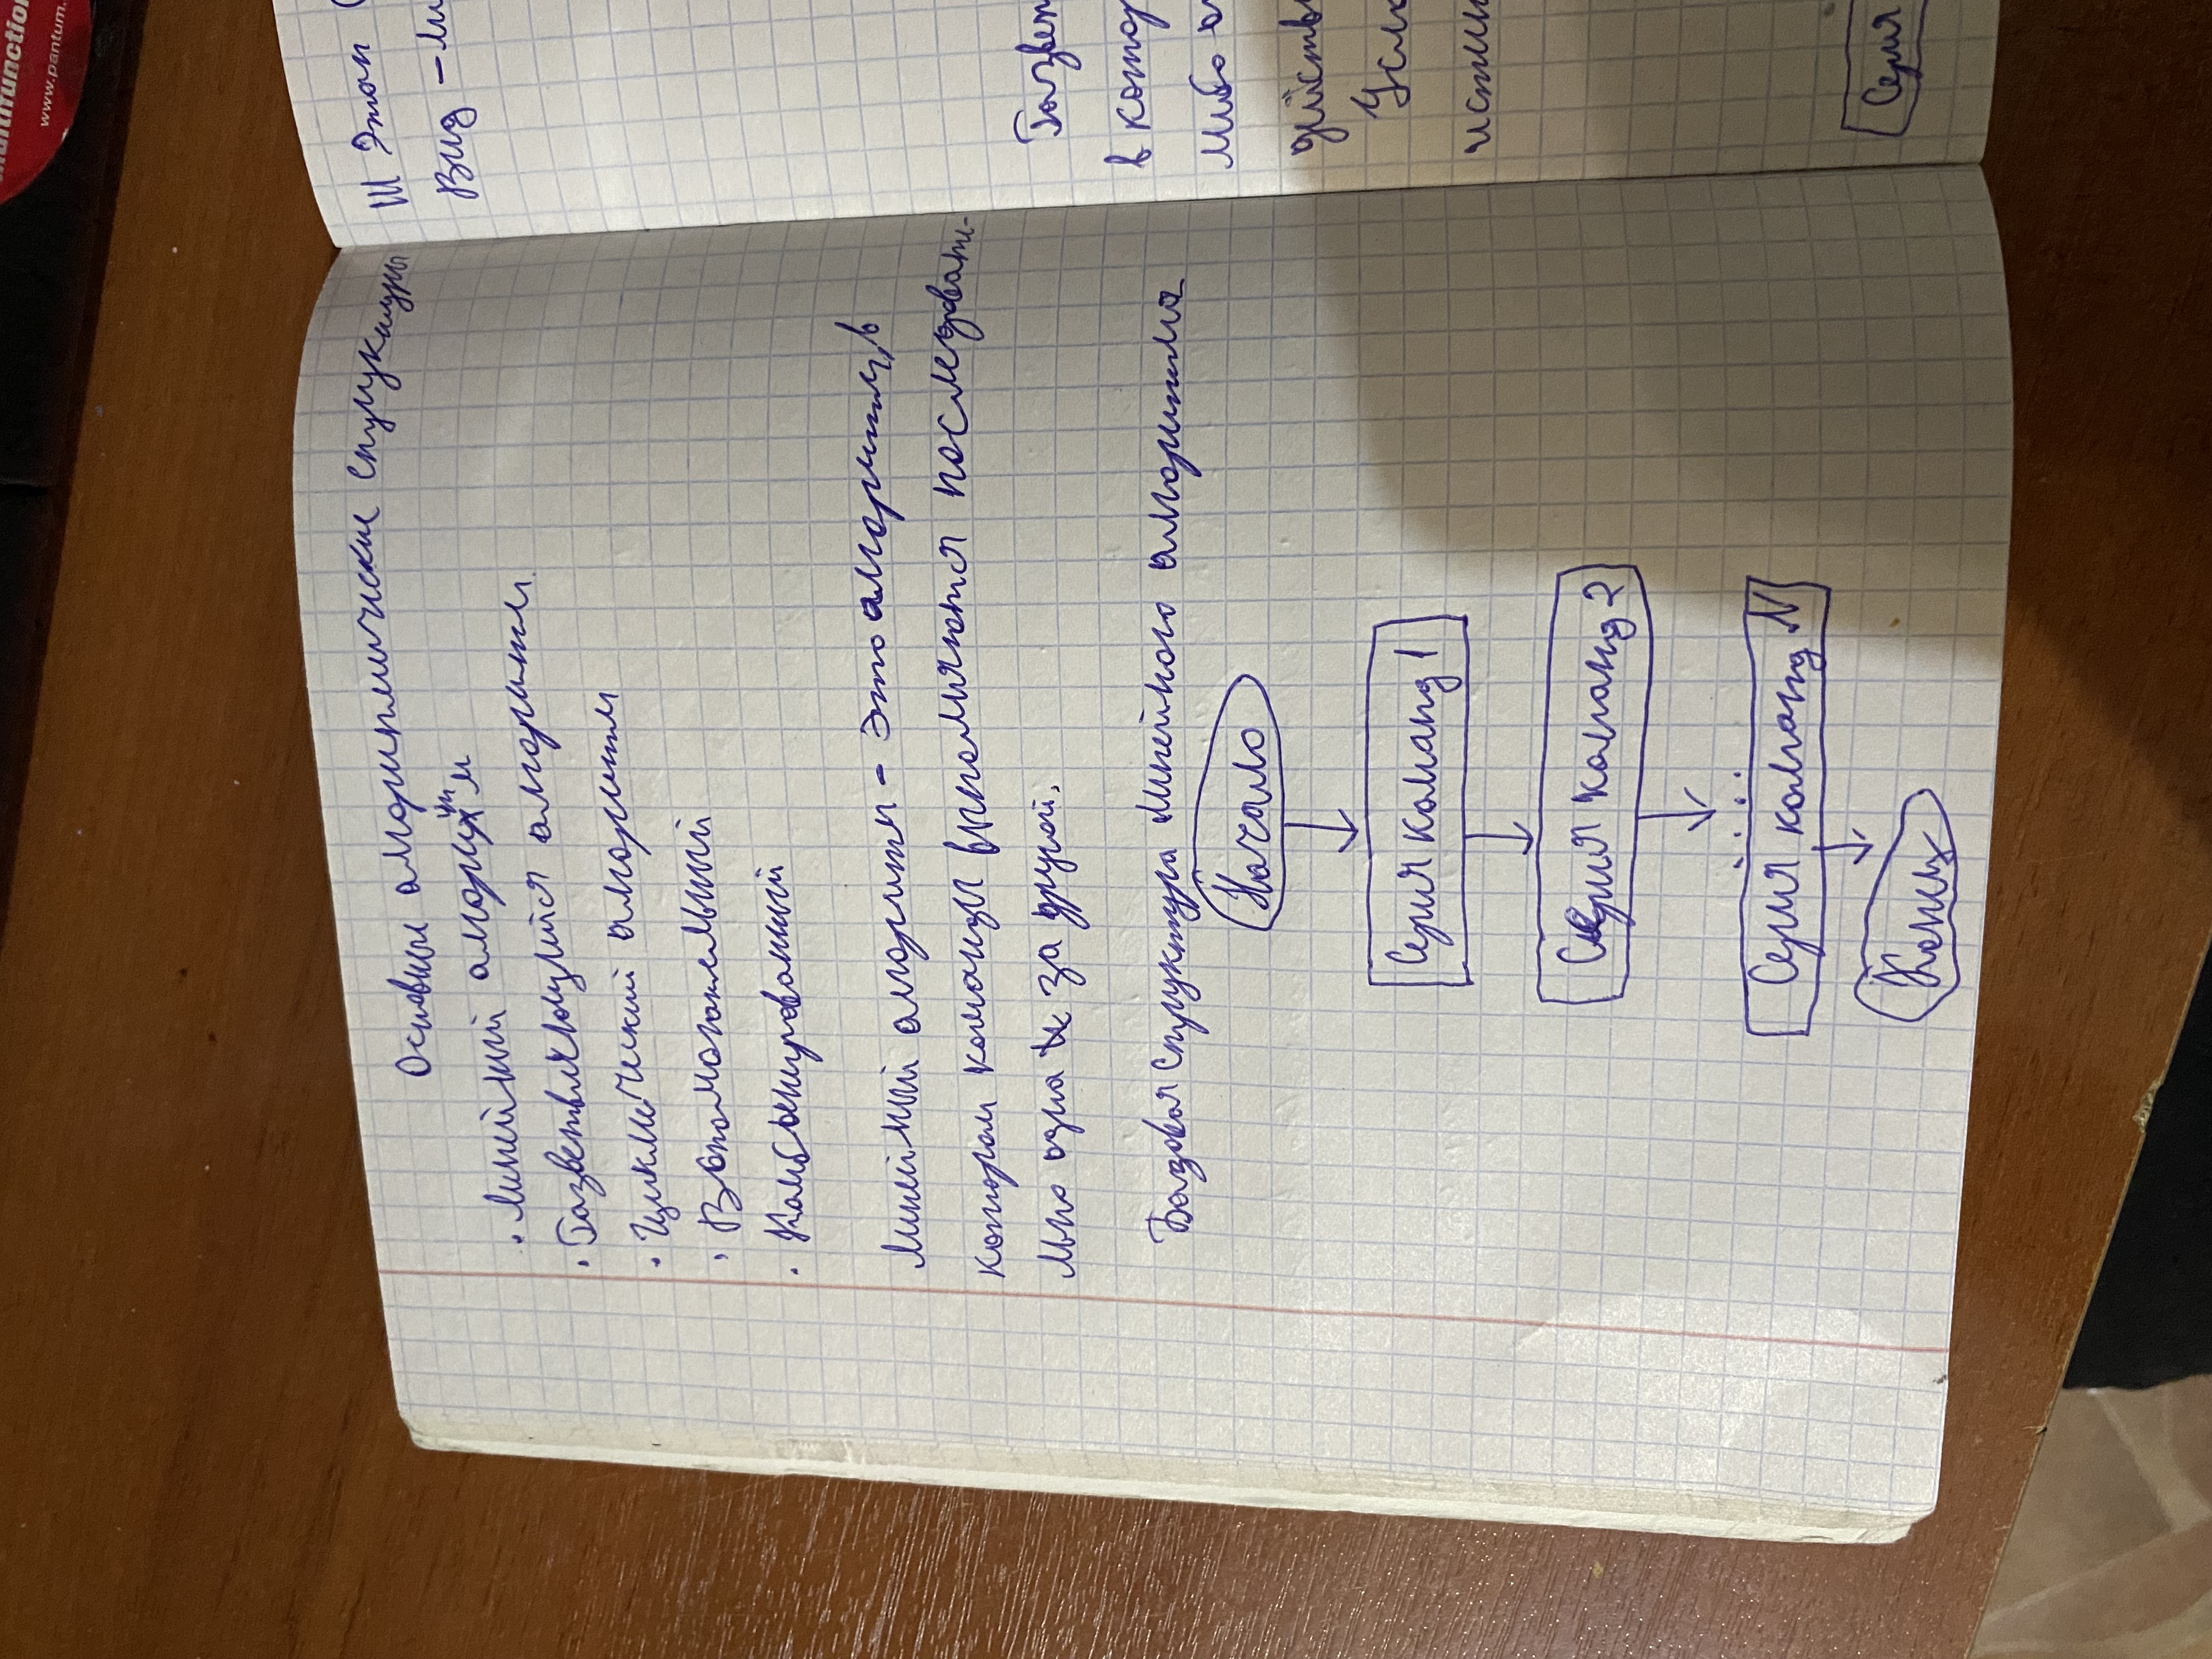 Основные алгоритмические структуры
• Линейный алгоритм
• Разветвляющийся алгоритм
• Циклический алгоритм
• Вспомогательный
• Комбинированный
Линейный алгоритм - это алгоритм, в
котором команды выполняются последовате-
льно одна за другой.
Базовая структура линейного алгоритма
Начало
Серия команд 1
Серия команд 2
.....
Серия команд N
Конец
III Этап (
Вид - ли
Развет
в котор
либо
действ
Усло
истин
Серия
multifunction
www.pantum.